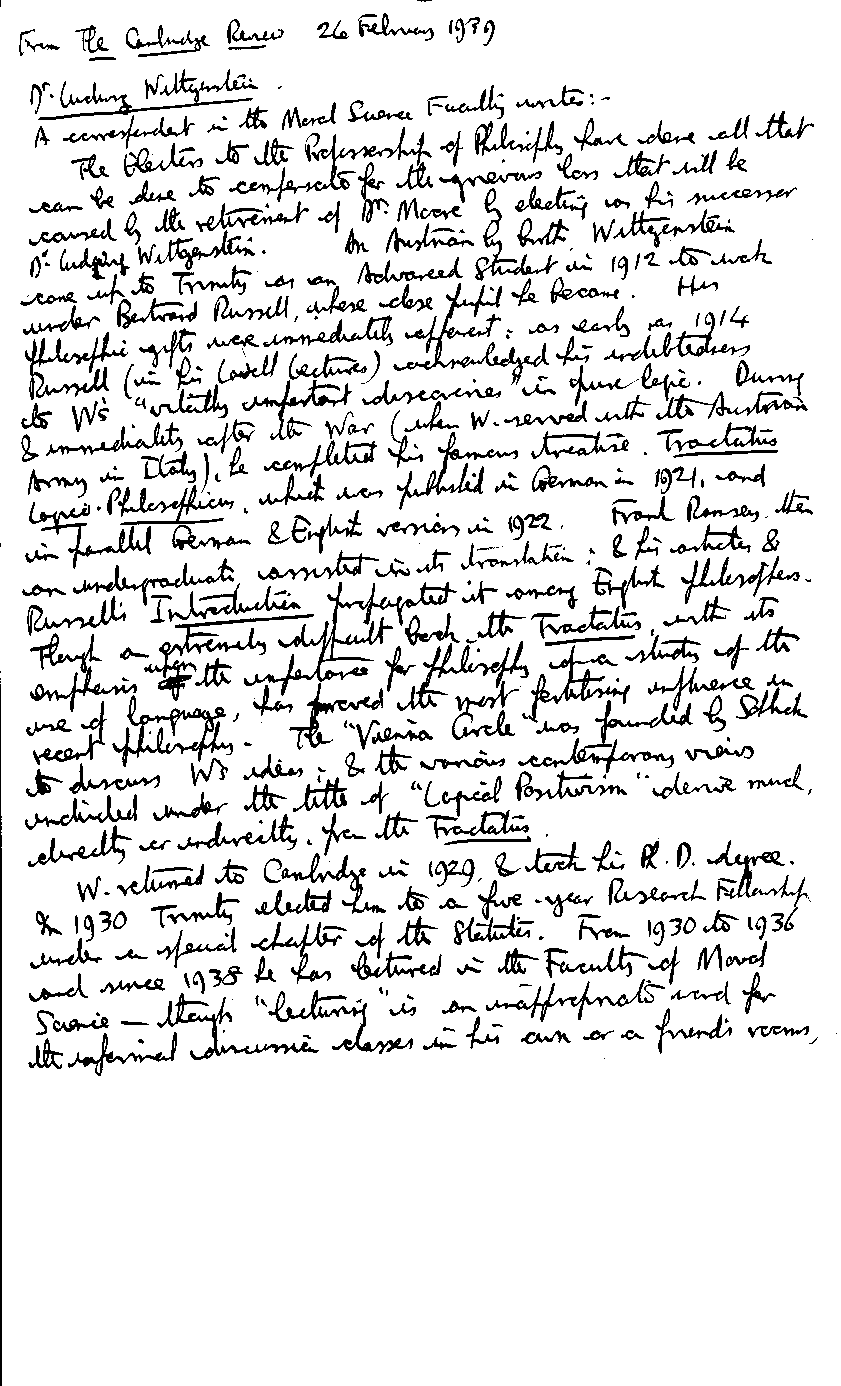 From The Cambridge Review 26 February 1939
Dr. Ludwig Wittgenstein.
A correspondent in the Moral Science Faculty writes:-
The Electors to the Professorship of Philosophy have done all that
can be done to compensate for the grievous loss that will be
caused by the retirement of Dr. Moore by electing as his successor
Dr. Ludwig Wittgenstein. An Austrian by birth, Wittgenstein
came up to Trinity as an Advanced Student in 1912 to work
under Bertrand Russell, whose close pupil he became. His
philosophic gifts were immediately apparent: as early as 1914
Russell (in his Lowell Lectures) acknowledged his indebtedness
to W's "vitally important discoveries" in pure logic. During
& immediately after the War (when W. served with the Austrian
Army in Italy), he completed his famous treatise, Tractatus
Logico-Philosophicus, which was published in German in 1921, and
in parallel German & English versions in 1922. Frank Ramsey, then
an undergraduate, assisted in its translation; & his articles &
Russell's Introduction propagated it among English philosophers.
Though an extremely difficult book, the Tractatus, with its
emphasis upon the importance for philosophy of a study of the
use of language, has proved the most fertilising influence in
recent philosophy. The "Vienna Circle" was founded by Schlick
to discuss W's ideas; & the various contemporary views
included under the title of "Logical Positivism" derive much,
directly or indirectly, from the Tractatus.
W. returned to Cambridge in 1929, & took his Ph.D. degree.
In 1930 Trinity elected him to a five-year Research Fellowship
under a special chapter of the Statutes. From 1930 to 1936
and since 1938 he has lectured in the Faculty of Moral
Science — though "lecturing" is an inappropriate word for
the informal discussion classes in his own or a friend's rooms,